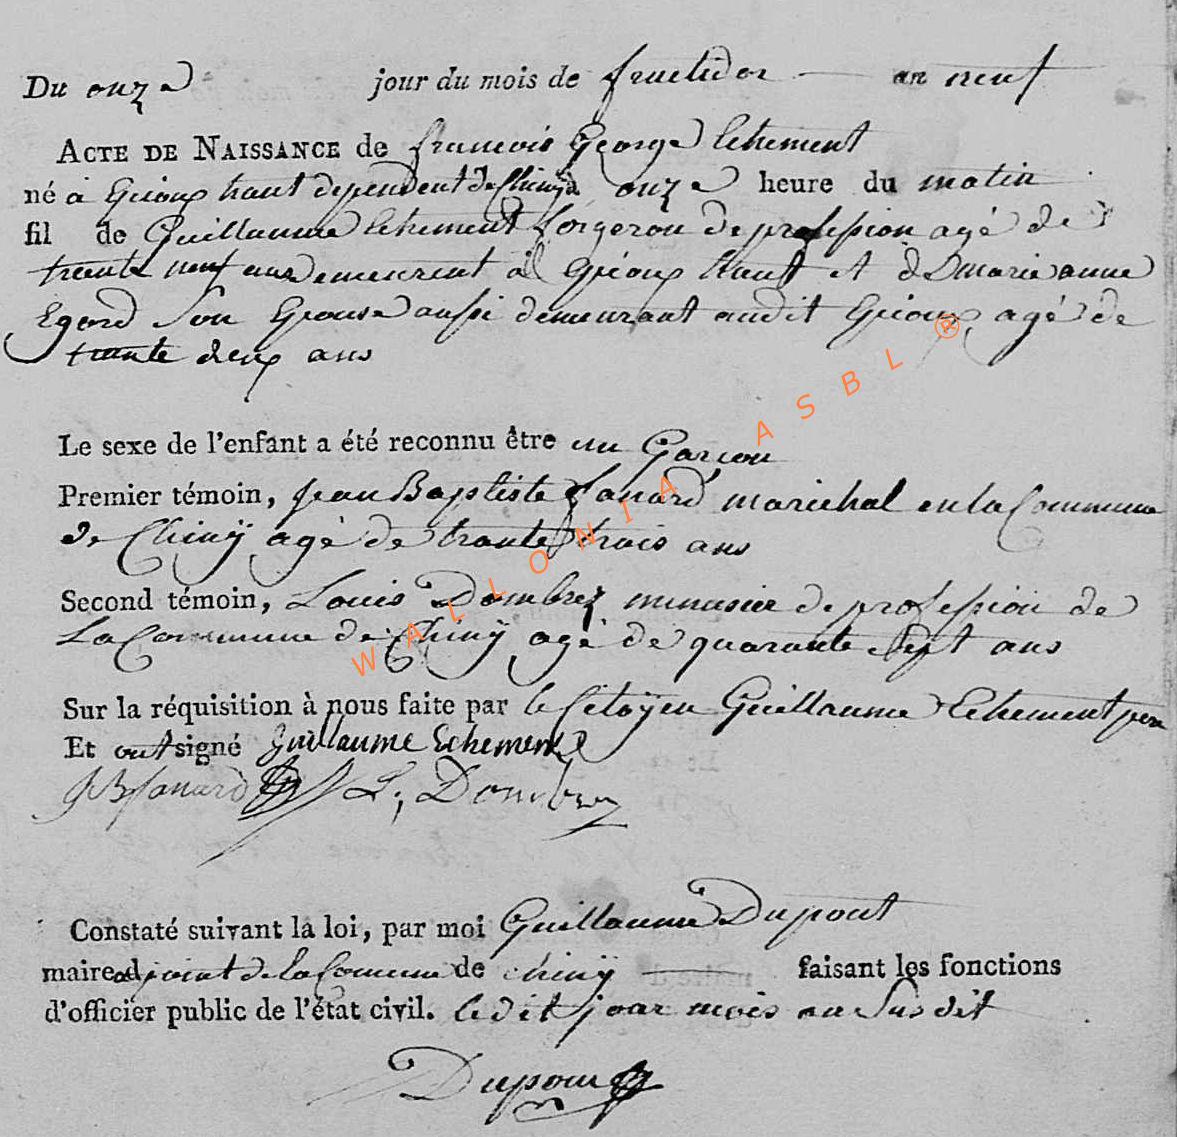 Du onze jour du mois de fructidor an neuf
ACTE DE NAISSANCE de francois George Lehement
né à Gérouxhaut dependent de Chiny à onze heure du matin
fil de Guillaume Lehement forgeron de profession agé de
trente neuf ans demeurent à Géroux haut et d Marie anne
Egard son Epouse aussi demeurant audit Géroux agé de
trante deux ans
Le sexe de l'enfant a été reconnu être un Garcon
Premier témoin, Jean Baptiste fanard marichal en la Commune
de Chinÿ agé de trante trois ans
Second témoin, Louis Dombrez menusier de profession de
La Commune de Chinÿ agé de quarante sept ans
Sur la réquisition à nous faite par le Citoÿen Guillaume Lehement pere
Et ont signé guillaume Lehement
JB fanard L; Dombrez
Constaté suivant la loi, par moi Guillaume Dupont
maire adjoint de la Comune de chinÿ faisant les fonctions
d'officier public de l'état civil. ledit jour mois an Susdit
Dupont
WALLONIA ASBL ®